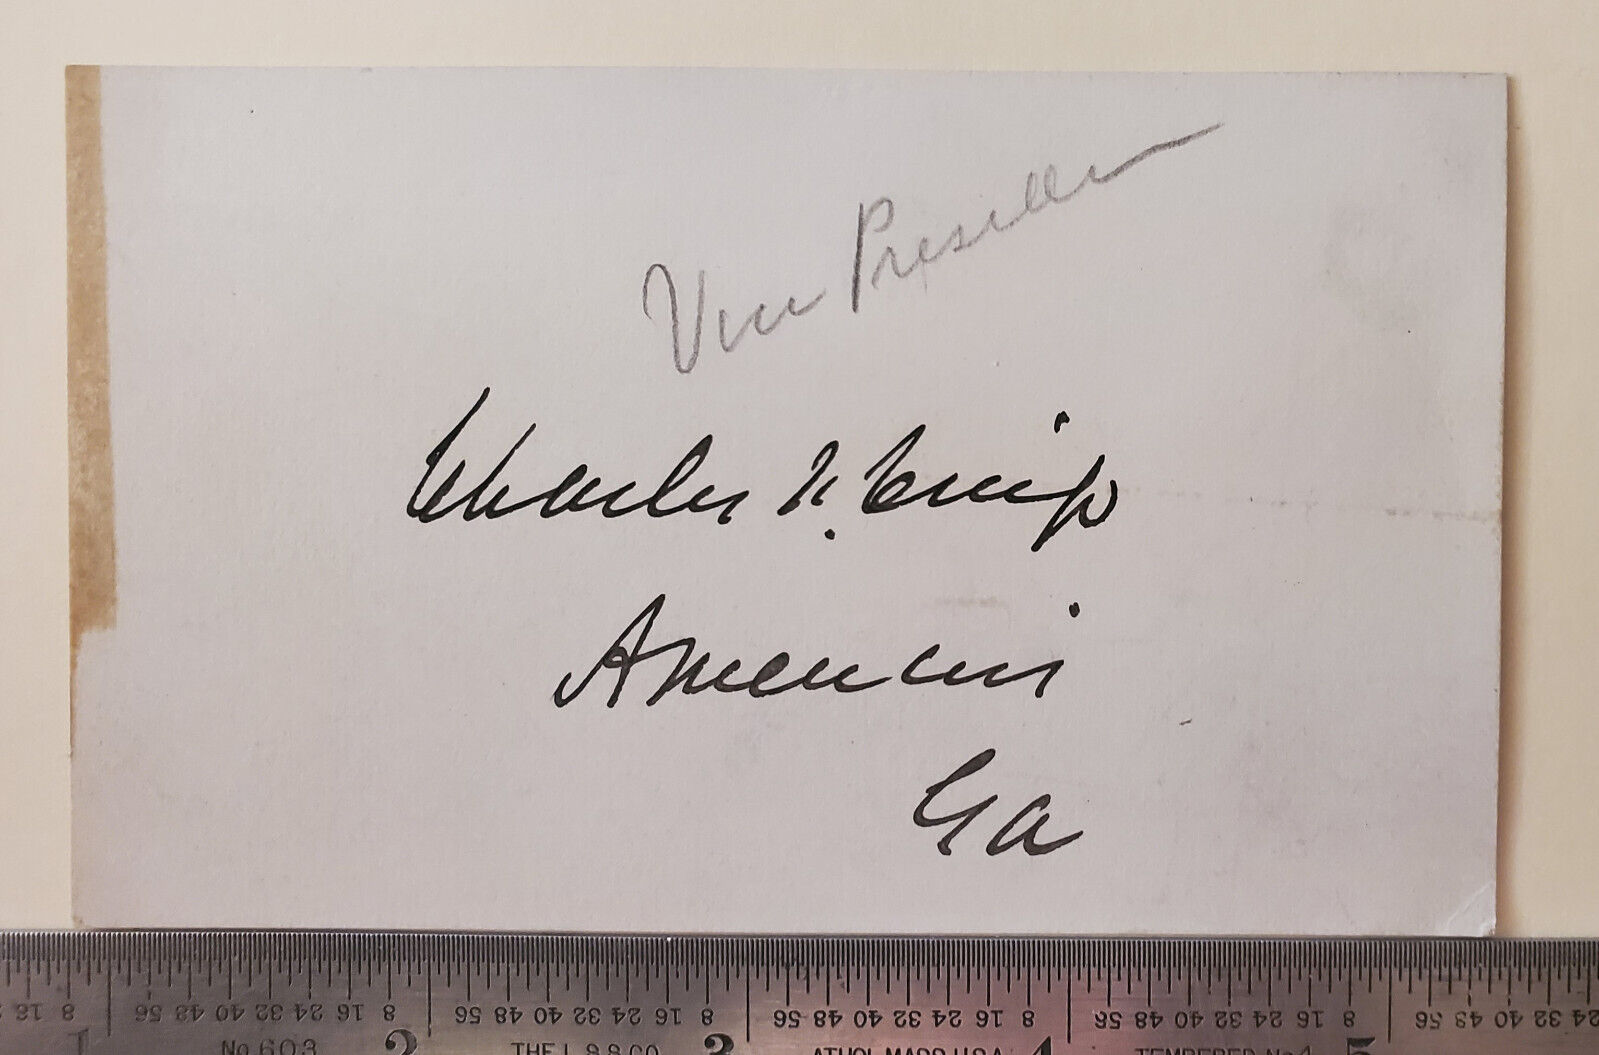 Vice President
Charles R. Crisp
Americus
Ga
8 16 24 32 40 48 56 8 16 24 32 40 48 56 8 16 24 32 40 48 56 8 16 24 32 40 48 56 8 16 24 32 40 48 56
1 No 603 2 THE L.S.S.CO. 3 ATHOL MASS. U.S.A. 4 TEMPERED No 4 5